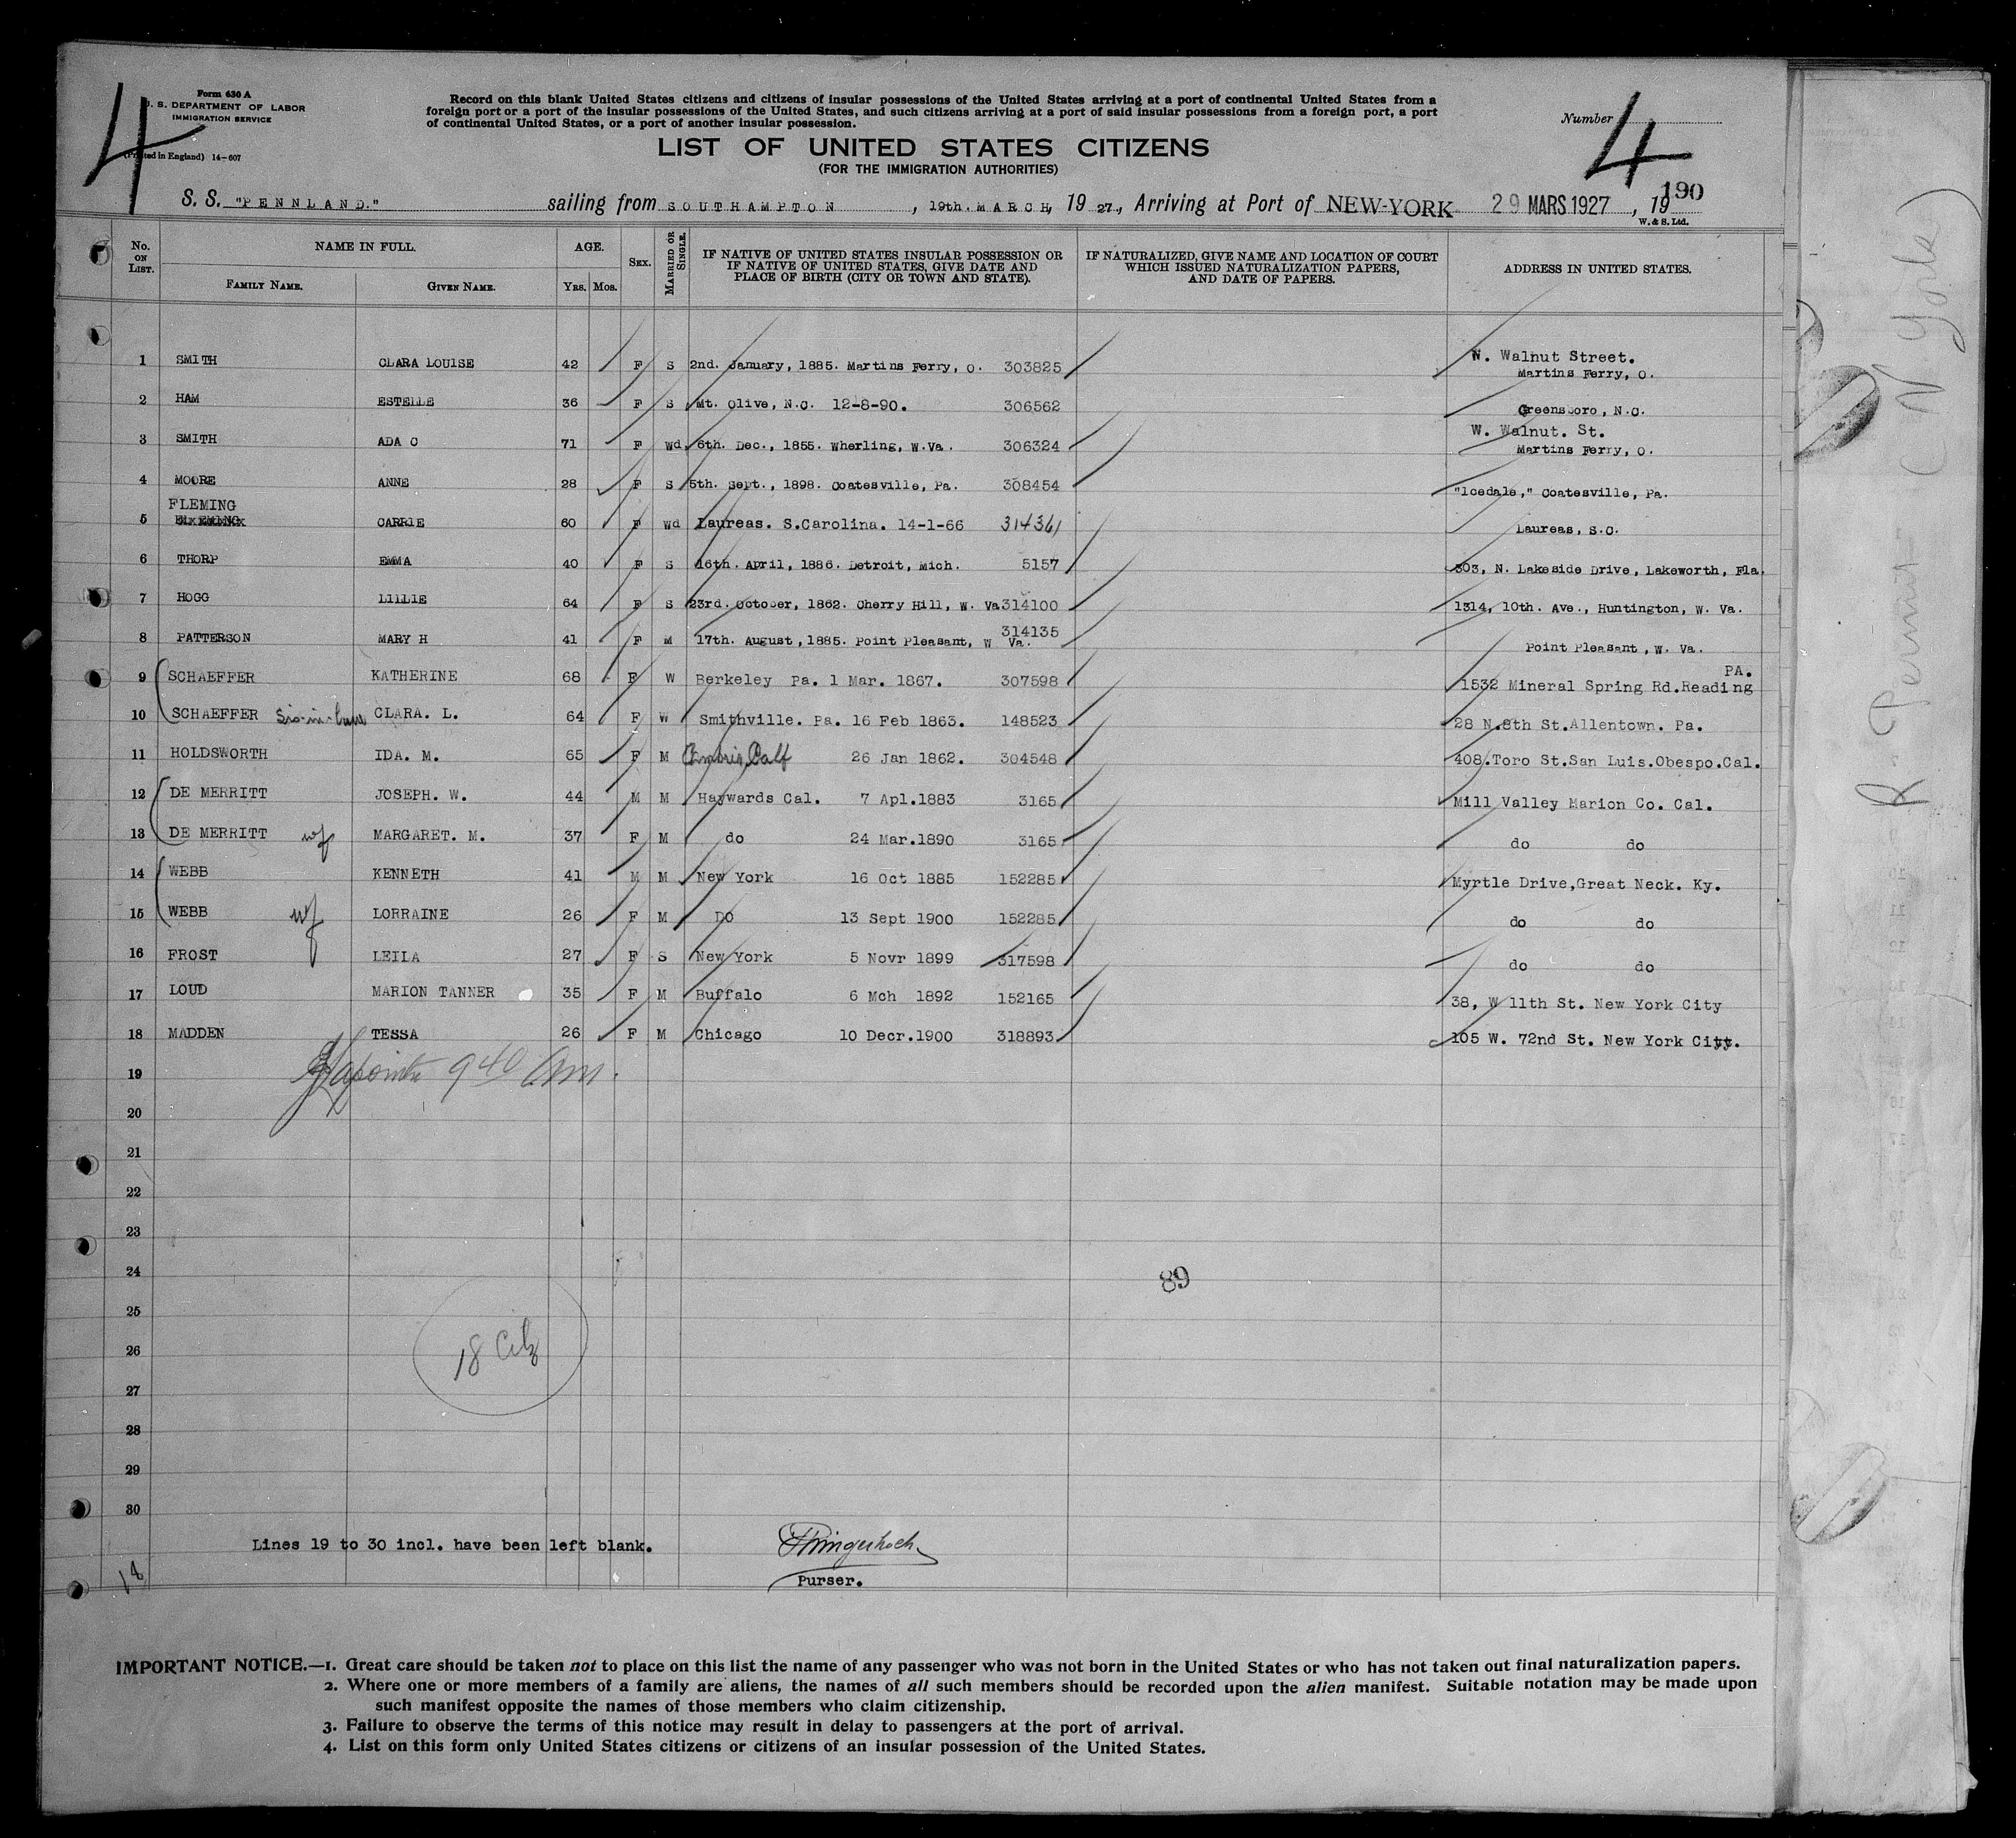 Form 630 A
U. S. DEPARTMENT OF LABOR
IMMIGRATION SERVICE
(Printed in England) 14—607
4
Record on this blank United States citizens and citizens of insular possessions of the United States arriving at a port of continental United States from a
foreign port or a port of the insular possessions of the United States, and such citizens arriving at a port of said insular possessions from a foreign port, a port
of continental United States, or a port of another insular possession.
LIST OF UNITED STATES CITIZENS
(FOR THE IMMIGRATION AUTHORITIES)
Number 4
190
S. S. "PENNLAND." sailing from SOUTHAMPTON, 19th. MARCH, 19 27., Arriving at Port of NEW-YORK 29 MARS 1927, 19
W. & S. Ltd.
No. ON LIST. NAME IN FULL. FAMILY NAME. GIVEN NAME. AGE. YRS. MOS. SEX. MARRIED OR SINGLE. IF NATIVE OF UNITED STATES INSULAR POSSESSION OR IF NATIVE OF UNITED STATES, GIVE DATE AND PLACE OF BIRTH (CITY OR TOWN AND STATE). IF NATURALIZED, GIVE NAME AND LOCATION OF COURT WHICH ISSUED NATURALIZATION PAPERS, AND DATE OF PAPERS. ADDRESS IN UNITED STATES.
1 SMITH CLARA LOUISE 42 F S 2nd. January, 1885. Martins Ferry, O. 303825 W. Walnut Street. Martins Ferry, O.
2 HAM ESTELLE 36 F S Mt. Olive, N.C. 12-8-90. 306562 Greensboro, N.C.
3 SMITH ADA C 71 F Wd 6th. Dec., 1855. Wherling, W.Va. 306324 W. Walnut. St. Martins Ferry, O.
4 MOORE ANNE 28 F S 5th. Sept., 1898. Coatesville, Pa. 308454 "Icedale," Coatesville, Pa.
5 FLEMING CARRIE 60 F Wd Laureas. S.Carolina. 14-1-66 314361 Laureas, S.C.
6 THORP EMMA 40 F S 16th. April, 1886. Detroit, Mich. 5157 303, N. Lakeside Drive, Lakeworth, Fla.
7 HOGG LILLIE 64 F S 23rd. October, 1862. Cherry Hill, W. Va 314100 1314, 10th. Ave., Huntington, W. Va.
8 PATTERSON MARY H 41 F M 17th. August, 1885. Point Pleasant, W Va. 314135 Point Pleasant, W. Va.
9 SCHAEFFER KATHERINE 68 F W Berkeley Pa. 1 Mar. 1867. 307598 1532 Mineral Spring Rd.Reading PA.
10 SCHAEFFER Sis-in-law CLARA. L. 64 F W Smithville. Pa. 16 Feb 1863. 148523 28 N.8th St.Allentown. Pa.
11 HOLDSWORTH IDA. M. 65 F M Calf 26 Jan 1862. 304548 408.Toro St.San Luis.Obespo.Cal.
12 DE MERRITT JOSEPH. W. 44 M M Haywards Cal. 7 Apl.1883 3165 Mill Valley Marion Co. Cal.
13 DE MERRITT wf MARGARET. M. 37 F M do 24 Mar.1890 3165 do do
14 WEBB KENNETH 41 M M New York 16 Oct 1885 152285 Myrtle Drive,Great Neck. Ky.
15 WEBB wf LORRAINE 26 F M Do 13 Sept 1900 152285 do do
16 FROST LEILA 27 F S New York 5 Novr 1899 317598 do do
17 LOUD MARION TANNER 35 F M Buffalo 6 Mch 1892 152165 38, W 11th St. New York City
18 MADDEN TESSA 26 F M Chicago 10 Decr.1900 318893 105 W. 72nd St. New York City.
19 9 40 Am.
20
21
22
23
24 89
25
26 18 Citz
27
28
29
30
Lines 19 to 30 incl. have been left blank.
Purser.
18
IMPORTANT NOTICE.—1. Great care should be taken not to place on this list the name of any passenger who was not born in the United States or who has not taken out final naturalization papers.
2. Where one or more members of a family are aliens, the names of all such members should be recorded upon the alien manifest. Suitable notation may be made upon
such manifest opposite the names of those members who claim citizenship.
3. Failure to observe the terms of this notice may result in delay to passengers at the port of arrival.
4. List on this form only United States citizens or citizens of an insular possession of the United States.
R. Permit (N York)